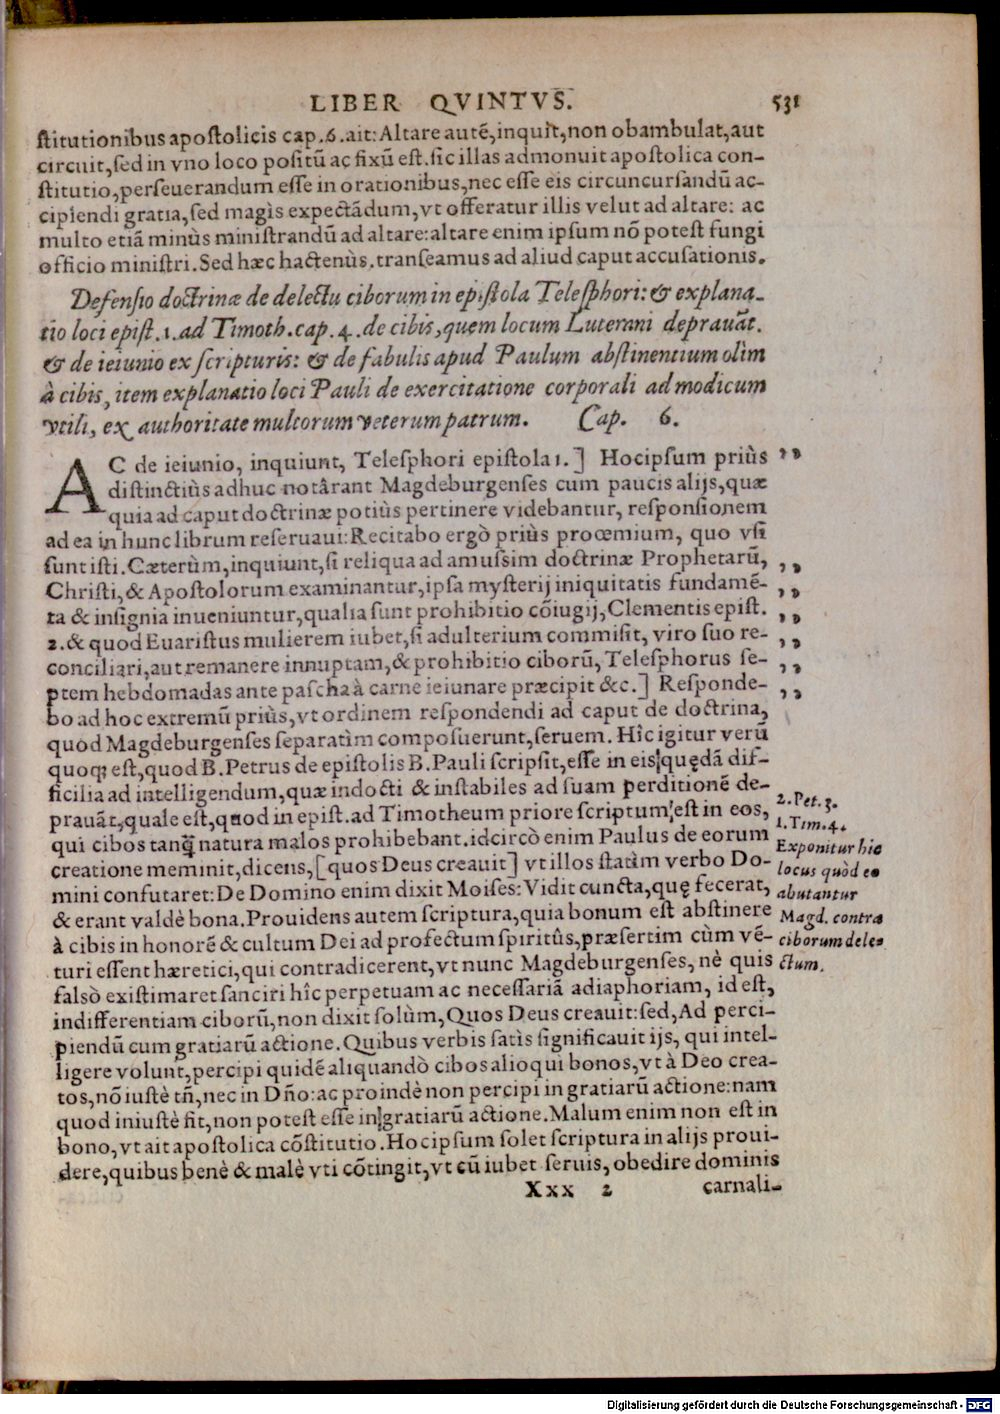 LIBER QVINTVS. 531
ſtitutionibus apoſtolicis cap. 6. ait: Altare autē, inquit, non obambulat, aut
circuit, ſed in vno loco poſitū ac fixū eſt. ſic illas admonuit apoſtolica con-
ſtitutio, perſeuerandum eſſe in orationibus, nec eſſe eis circuncurſandū ac-
cipiendi gratia, ſed magìs expectādum, vt offeratur illis velut ad altare: ac
multo etiā minùs miniſtrandū ad altare: altare enim ipſum nō poteſt fungi
officio miniſtri. Sed hæc hactenùs. tranſeamus ad aliud caput accuſationis.
Defenſio doctrinæ de delectu ciborum in epiſtola Teleſphori: & explana-
tio loci epiſt. 1. ad Timoth. cap. 4. de cibis, quem locum Luterani deprauāt.
& de ieiunio ex ſcripturis: & de fabulis apud Paulum abſtinentium olìm
à cibis, item explanatio loci Pauli de exercitatione corporali ad modicum
vtili, ex authoritate multorum veterum patrum. Cap. 6.
AC de ieiunio, inquiunt, Teleſphori epiſtola 1.] Hoc ipſum priùs ,,
diſtinctiùs adhuc notârant Magdeburgenſes cum paucis alijs, quæ
quia ad caput doctrinæ potiùs pertinere videbantur, reſponſionem
ad ea in hunc librum reſeruaui: Recitabo ergò priùs procœmium, quo vſi
ſunt iſti. Cæterùm, inquiunt, ſi reliqua ad amuſſim doctrinæ Prophetarū, ,,
Chriſti, & Apoſtolorum examinantur, ipſa myſterij iniquitatis fundamē- ,,
ta & inſignia inueniuntur, qualia ſunt prohibitio cōiugij, Clementis epiſt. ,,
2. & quod Euariſtus mulierem iubet, ſi adulterium commiſit, viro ſuo re- ,,
conciliari, aut remanere innuptam, & prohibitio ciborū, Teleſphorus ſe- ,,
ptem hebdomadas ante paſcha à carne ieiunare præcipit &c.] Reſponde- ,,
bo ad hoc extremū priùs, vt ordinem reſpondendi ad caput de doctrina,
quod Magdeburgenſes ſeparatìm compoſuerunt, ſeruem. Hîc igitur verū
quoq; eſt, quod B. Petrus de epiſtolis B. Pauli ſcripſit, eſſe in eis quędā dif-
ficilia ad intelligendum, quæ indocti & inſtabiles ad ſuam perditionē de-
prauāt, quale eſt, quod in epiſt. ad Timotheum priore ſcriptum eſt in eos,
qui cibos tanq̃ natura malos prohibebant. idcircò enim Paulus de eorum
creatione meminit, dicens, [quos Deus creauit] vt illos ſtatìm verbo Do-
mini confutaret: De Domino enim dixit Moiſes: Vidit cuncta, quę fecerat,
& erant valdè bona. Prouidens autem ſcriptura, quia bonum eſt abſtinere
à cibis in honorē & cultum Dei ad profectum ſpiritûs, præſertim cùm vē-
turi eſſent hæretici, qui contradicerent, vt nunc Magdeburgenſes, nè quis
falsò exiſtimaret ſanciri hîc perpetuam ac neceſſariā adiaphoriam, id eſt,
indifferentiam ciborū, non dixit ſolùm, Quos Deus creauit: ſed, Ad perci-
piendū cum gratiarū actione. Quibus verbis ſatìs ſignificauit ijs, qui intel-
ligere volunt, percipi quidē aliquandò cibos alioqui bonos, vt à Deo crea-
tos, nō iuſtè tñ, nec in Dño: ac proindè non percipi in gratiarū actione: nam
quod iniuſtè fit, non poteſt eſſe in gratiarū actione. Malum enim non eſt in
bono, vt ait apoſtolica cōſtitutio. Hoc ipſum ſolet ſcriptura in alijs proui-
dere, quibus benè & malè vti cōtingit, vt cū iubet ſeruis, obedire dominis
Xxx 2 carnali-
2. Pet. 3.
1. Tim. 4.
Exponitur hic
locus quòd eo
abutantur
Magd. contra
ciborum dele-
ctum.
Digitalisierung gefördert durch die Deutsche Forschungsgemeinschaft - DFG